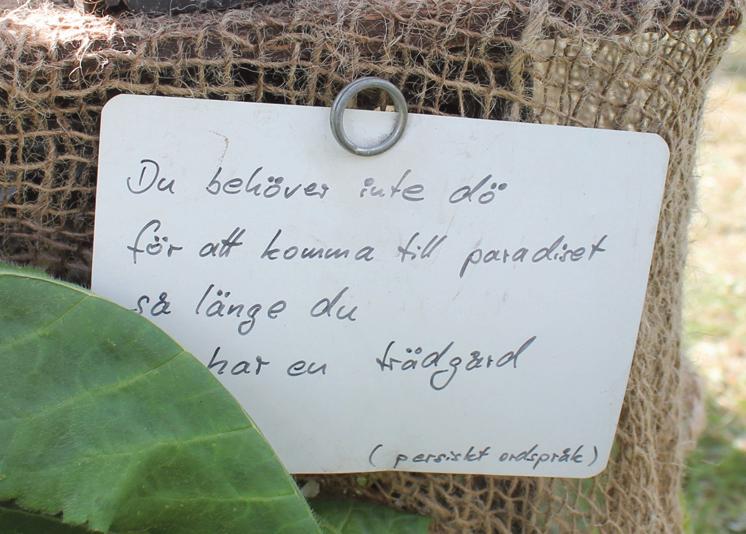 Du behöver inte dö
för att komma till paradiset
så länge du
har en trädgård
(persiskt ordspråk)